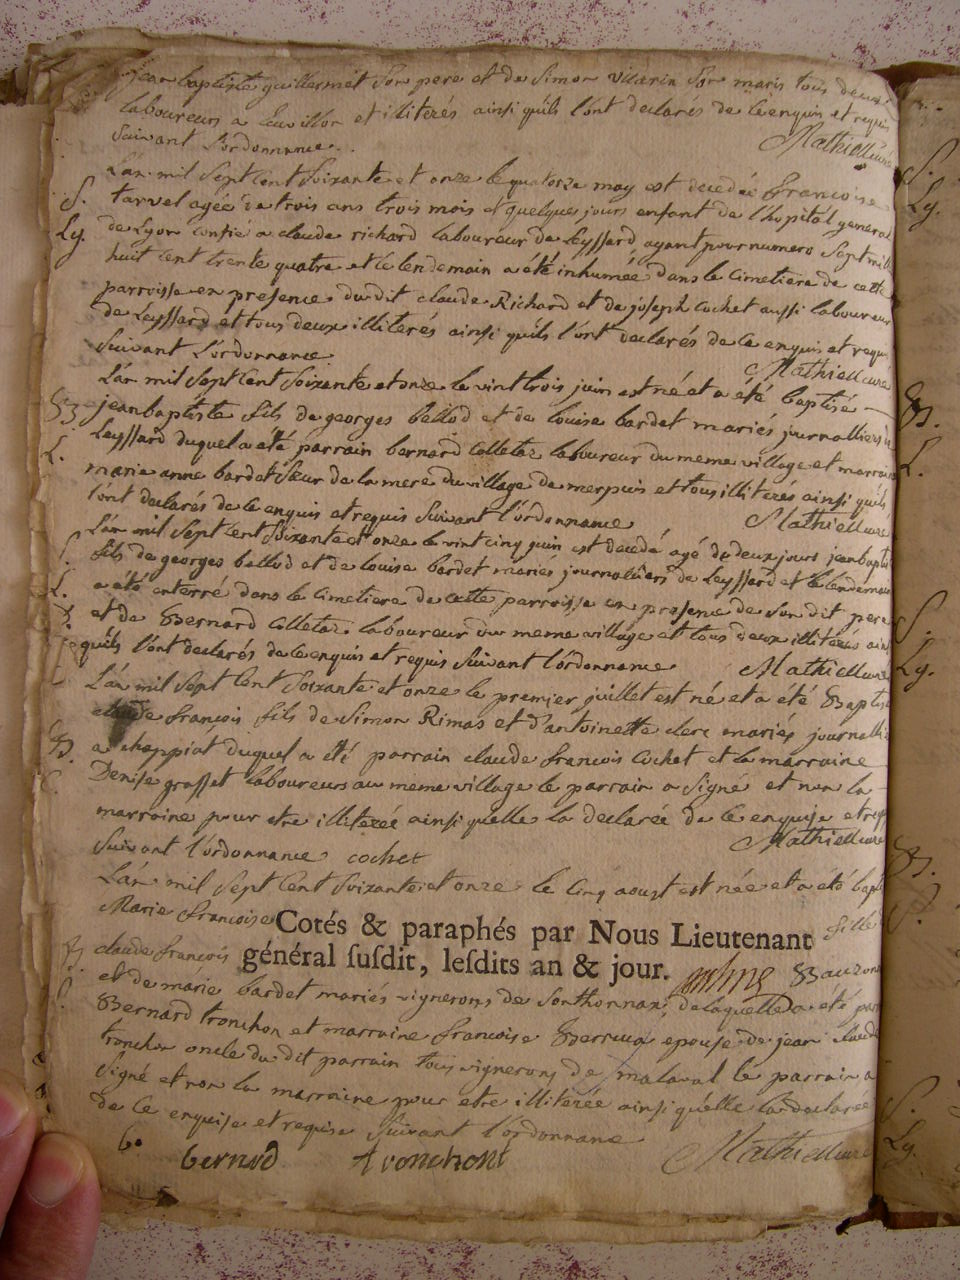 jean baptiste guillermet son pere et de Simon vitarin son maris tous deux
laboureurs a et illiterés ainsi quils l'ont declarés de ce enquis et requis
suivant l'ordonnance. Mathieu curé
L'an mil sept cent soixante et onze le quatorze may est decedée francoise
S. tarvel agée de trois ans trois mois et quelques jours enfant de l'hopital general
Ly. de Lyon confié a claude richard laboureur de Leyssard ayant pour numero sept mill
huit cent trente quatre et le lendemain a été inhumée dans le cimetiere de cette
parroisse en presence du dit claude Richard et de joseph cochet aussi laboureur
de Leyssard et tous deux illiterés ainsi quils l'ont declarés de ce enquis et requi
suivant l'ordonnance Mathieu curé
L'an mil sept cent soixante et onze le vint trois juin est né et a été baptisé
B. jean baptiste fils de georges bellod et de louise bardet mariés journalliers de
L. Leyssard duquel a été parrain bernard colletaz laboureur du meme village et marrain
marie anne bardet sœur de la mere du village de merpuis et tous illiterés ainsi quils
l'ont declarés de ce enquis et requis suivant l'ordonnance Mathieu curé
L'an mil sept cent soixante et onze le vint cinq juin est decedé agé de deux jours jean baptis
S. fils de georges bellod et de louise bardet mariés journalliers de Leyssard et le lendemain
L. a été enterré dans le cimetiere de cette parroisse en presence de son dit pere
et de Bernard colletaz laboureur du meme village et tous deux illiterés ains
quils l'ont declarés de ce enquis et requis suivant l'ordonnance Mathieu curé
L'an mil sept cent soixante et onze le premier juillet est né et a été Baptisé
claude françois fils de Simon Rimas et d'antoinette clerc mariés journallie
B. a choppiat duquel a été parrain claude francois cochet et la marraine
Denise grasset laboureurs au meme village le parrain a signé et non la
marraine pour etre illiterée ainsi quelle la declarée de ce enquise et requ
suivant l'ordonnance cochet Mathieu curé
L'an mil sept cent soixante et onze le cinq aoust est née et a été bapti
Marie francoise fille
Cotés & paraphés par Nous Lieutenant
général susdit, lesdits an & jour.
claude francois Bauzon
et de marie bardet mariés vignerons de Sonthonnax, de laquelle a été par
Bernard tronchon et marraine francoise epouse de jean claude
tronchon oncle du dit parrain tous vignerons de malaval le parrain a
signé et non la marraine pour etre illiterée ainsi quélle la declarée
de ce enquise et requise suivant l'ordonnance
6. bernard tronchont Mathieu curé
S.
Ly.
B.
L.
S.
Ly.
B.
S.
S.
Ly.